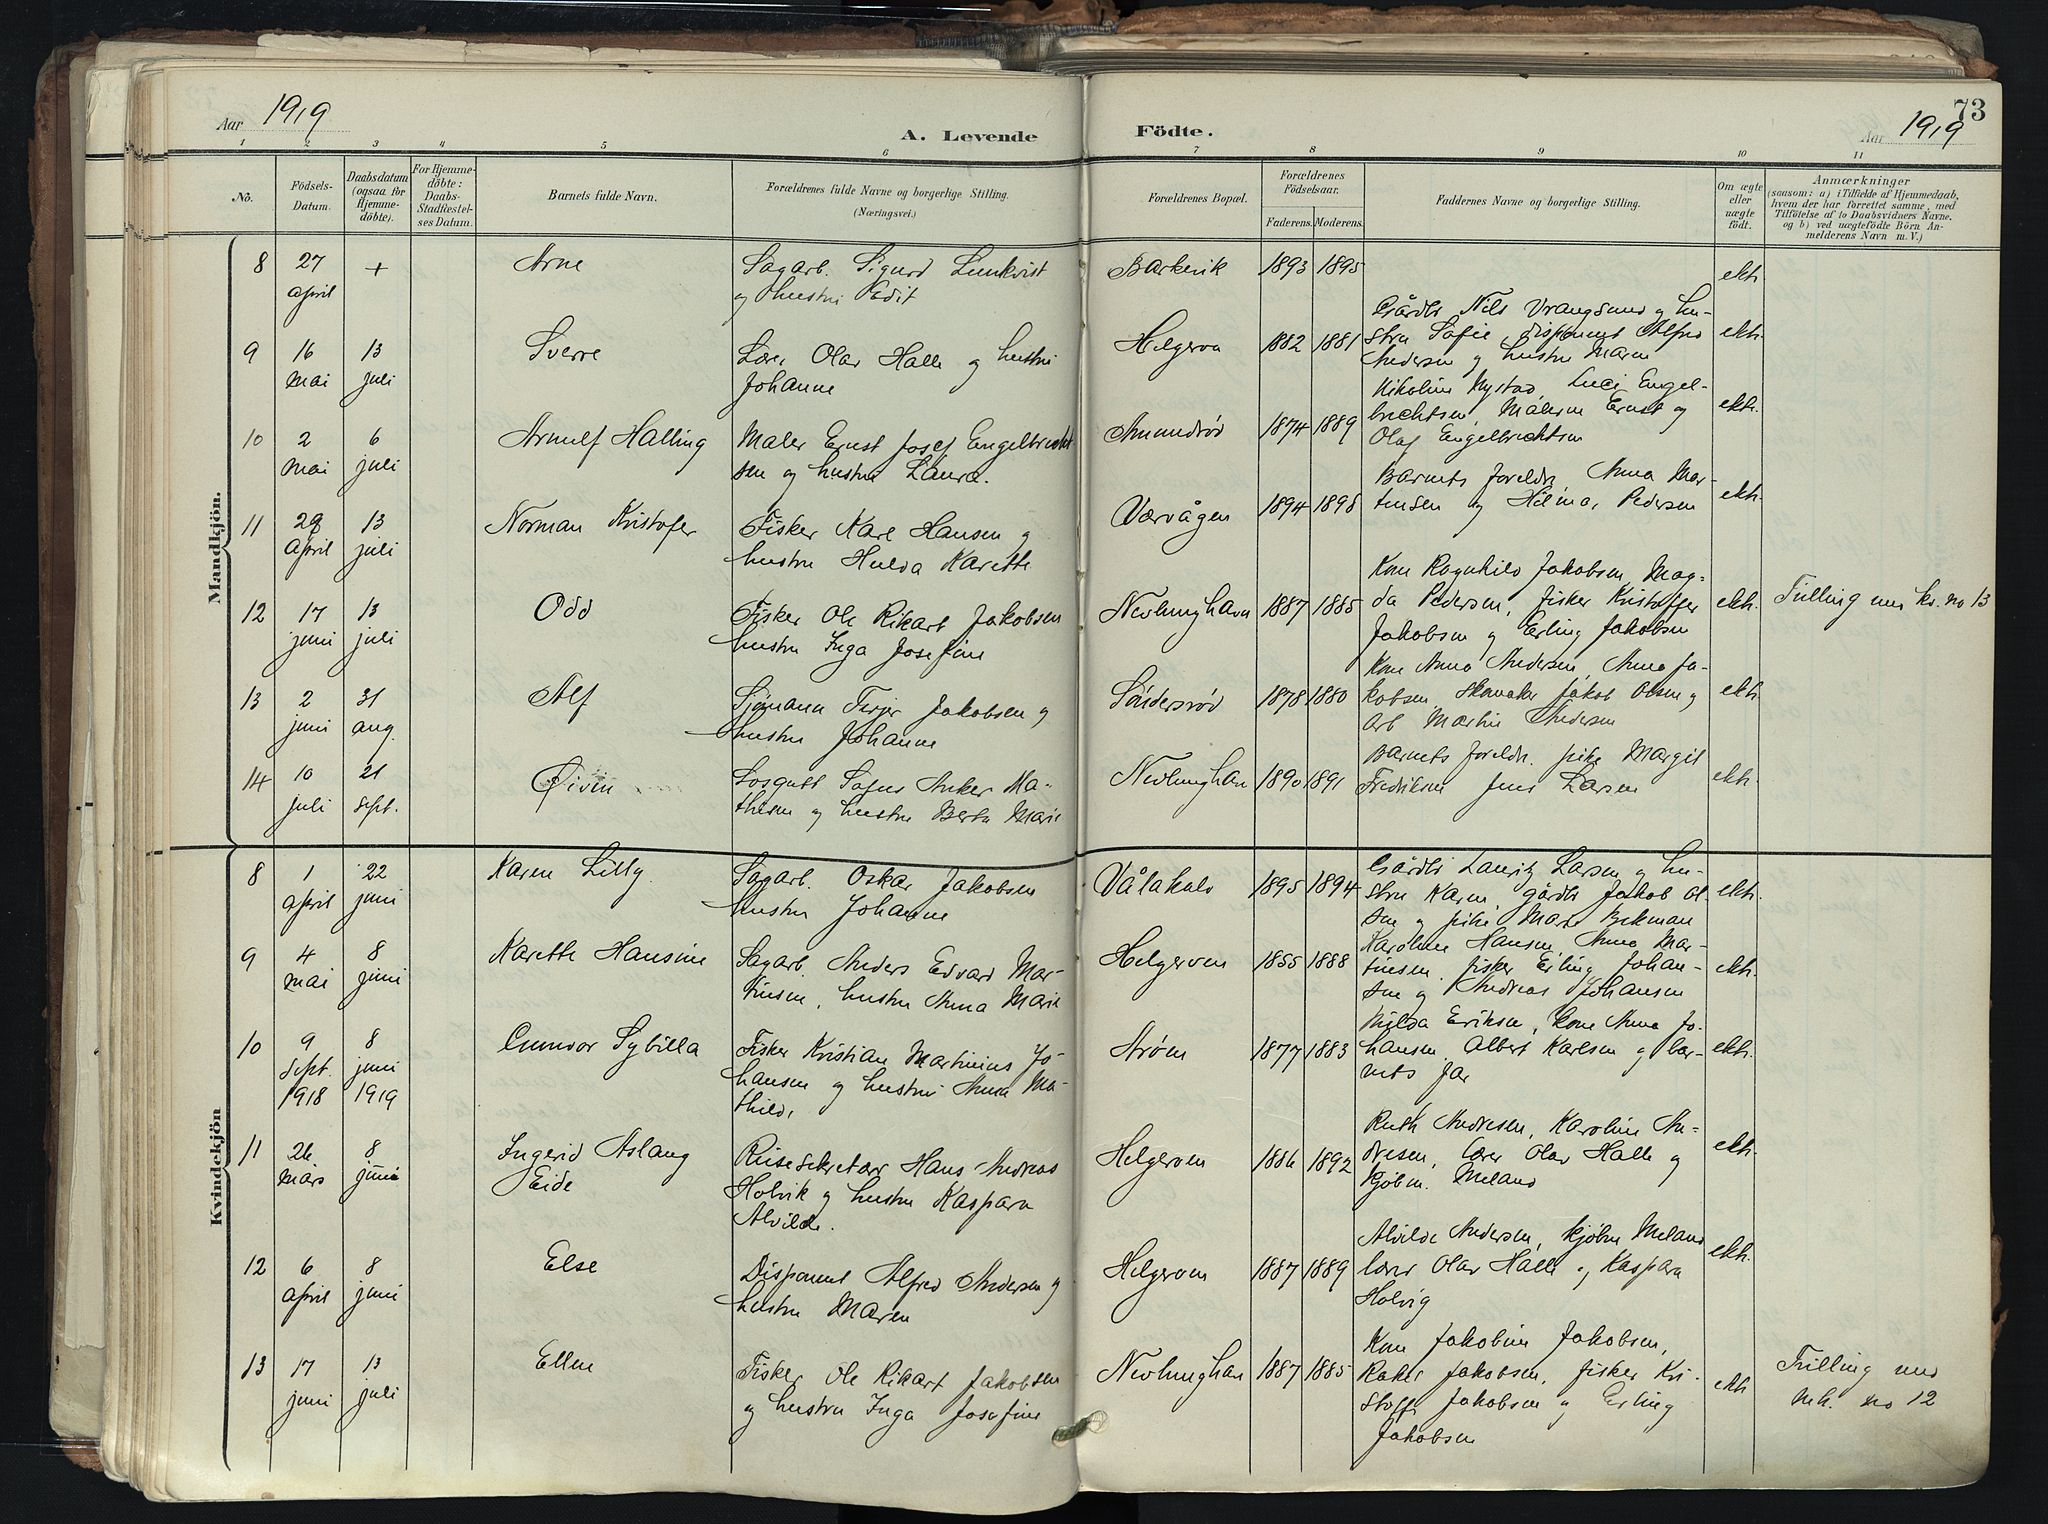 Aar 1919
A. Levende
Födte.
73
Aar 1919
1 2 3 4 5 6 7 8 9 10 11
No.
Födsels-
Datum.
Daabsdatum
(ogsaa for
Hjemme-
döbte).
For Hjemme-
döbte:
Daabs-
Stadfæstel-
ses Datum.
Barnets fulde Navn.
Forældrenes fulde Navne og borgerlige Stilling.
(Næringsvei.)
Forældrenes Bopæl.
Forældrenes
Födselsaar.
Faderens. Moderens.
Faddernes Navne og borgerlige Stilling.
Om ægte
eller
uægte
födt.
Anmærkninger
(saasom: a) i Tilfælde af Hjemmedaab,
hvem der har forrettet samme, med
Tilföielse af to Daabsvidners Navne.
og b) ved uægtefödte Börn An-
melderens Navn m. V.)
Mandkjön.
8 27 april + Arne
Sagarb. Sigurd Lunkvist
og hustru Edit
Barkevik 1893 1895 ekte
9 16 mai 13 juli Sverre
Lærer Olav Halle og hustru
Johanne
Helgeroa 1882 1881
Gårdbr Nils Vrangsund og hu-
stru Sofie, disponent Alfred
Andersen og hustru Maren
ekte.
10 2 mai 6 juli Arnulf Halling
Maler Ernst Josef Engelbrecht
sen og hustru Laura.
Amundrød 1874 1889
Nikoline Nystad, Lucie Engel-
brechtsen, Malerne Ernst og
Olaf Engelbrechtsen
ekte.
11 28 april 13 juli Norman Kristofer
Fisker Karl Hansen og
hustru Hulda Karette
Værvågen 1894 1898
Barnets foreldre, Anna Mar-
tinsen og Hilmar Pedersen
ekte.
12 17 juni 13 juli Odd
Fisker Ole Rikart Jakobsen
hustru Inga Josefine
Nevlunghavn 1887 1885
Kone Ragnhild Jakobsen, Mag-
da Pedersen, fisker Kristoffer
Jakobsen og Erling Jakobsen
ekte.
Tvilling med kv. no 13
13 2 juni 31 aug. Alf
Sjømann Terjer Jakobsen og
hustru Johanne
Søndersrød 1878 1880
Kone Anna Andersen, Anna Ja-
kobsen, Skomaker Jakob Olsen og
arb. Martin Andersen
ekte.
14 10 juli 21 sept. Øivin
Losgutt Sofus Anker Ma-
thisen og hustru Berta Marie
Nevlunghavn 1890 1891
Barnets foreldre, pike Margit
Fredriksen Jens Larsen
ekte.
Kvindekjön
8 1 april 22 juni Karen Lilly.
Sagarb. Oskar Jakobsen
hustru Johanne
Vålakald 1895 1894
Gårdbr Lauritz Larsen og hu-
stru Karen, gårdbr Jakob Ol-
sen og pike Marie Bekman
ekte.
9 4 mai 8 juni Karette Hansine
Sagarb. Anders Edvard Mar-
tinsen, hustru Anna Marie
Helgeroen 1855 1888
Karoline Hansen, Anna Mar-
tinsen, fisker Erling Johan-
sen og Andreas Johansen
ekte.
10 9 Sept. 1918 8 juni 1919 Gunvor Sybilla
Fisker Kristian Martinius Jo-
hansen og hustru Anna Ma-
thilde
Strøm 1877 1883
Milda Eriksen, kone Anna Jo-
hansen, Albert Karlsen og bar-
nets far
ekte.
11 26 mars 8 juni Ingerid Aslaug
Eide
Reisesekretær Hans Andreas
Holvik og hustru Kaspara
Alvilde.
Helgeroen 1886 1892
Ruth Andresen, Karoline An-
dresen, lærer Olav Halle og
kjøbm. Meland
ekte.
12 6 april 8 juni Else
Disponent Alfred Andersen og
hustru Maren
Helgeroen 1887 1889
Alvilde Andersen, kjøbm Meland
lærer Olav Halle og Kaspara
Holvig
ekte.
13 17 juni 13 juli Ellen
Fisker Ole Rikart Jakobsen
og hustru Inga Josefine
Nevlunghavn 1887 1885
Kone Jakobine Jakobsen,
Rakel Jakobsen, fisker Kri-
stoffer Jakobsen og Erling
Jakobsen
ekte
Tvilling med
mk. no 12